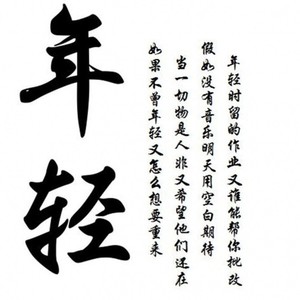 年轻
年轻时留的作业又谁能帮你批改
假如没有音乐明天用空白期待
当一切物是人非又希望他们还在
如果不曾年轻又怎么想要重来